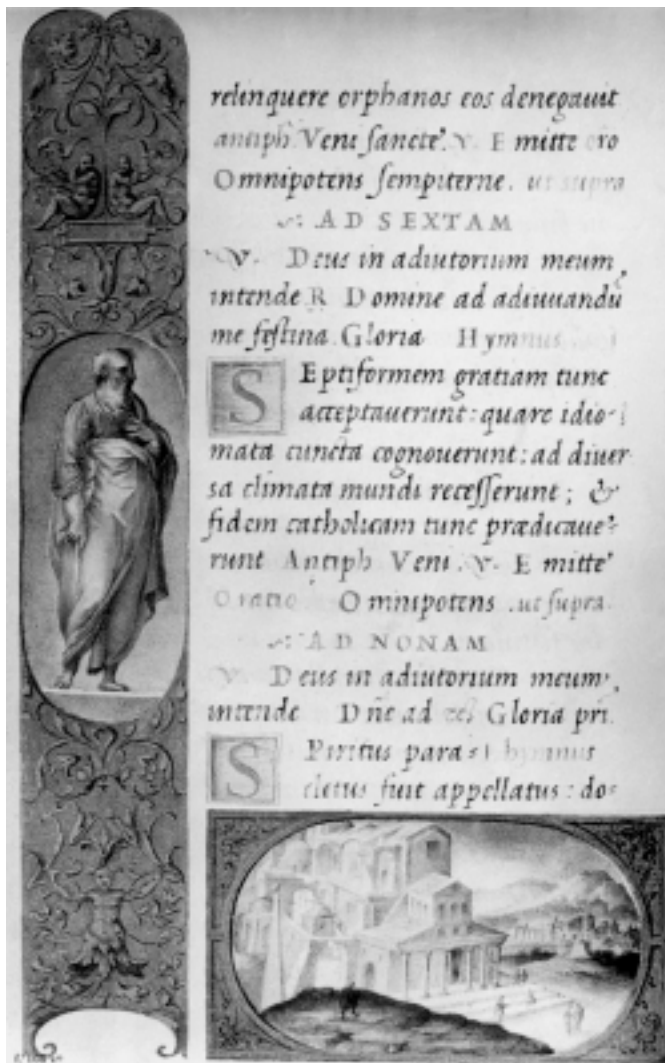 relinquere orphanos eos denegauit
antiph Veni sancte. V. E mitte oro
Omnipotens sempiterne. ut supra
AD SEXTAM
V. Deus in adiutorium meum,
intende R Domine ad adiuuandū
me festina. Gloria Hymnus
SEptiformem gratiam tunc
acceptauerunt: quare idio-
mata cuncta cognouerunt: ad diuer
sa climata mundi recesserunt; &
fidem catholicam tunc prædicaue-
runt Antiph Veni. V. E mitte
Oratio Omnipotens .ut supra.
AD NONAM
V. Deus in adiutorium meum,
intende Dñe ad Gloria pri.
SPiritus para- hymnus
cletus fuit appellatus: do-